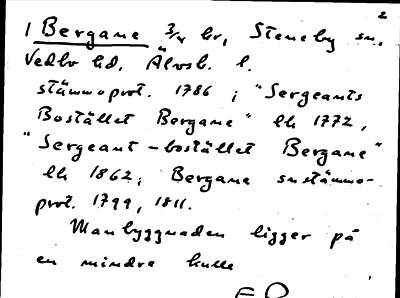 2
1 Bergane 3/4 hr, Steneby sn,
Vedbo hd, Älvsb. l.
stämmoprot. 1786 ; "Sergeants
Bostället Bergane" lh 1772,
"Sergeant-bostället Bergane"
lh 1862; Bergane snstämmo-
prot. 1799, 1811.
Manbyggnaden ligger på
en mindre kulle